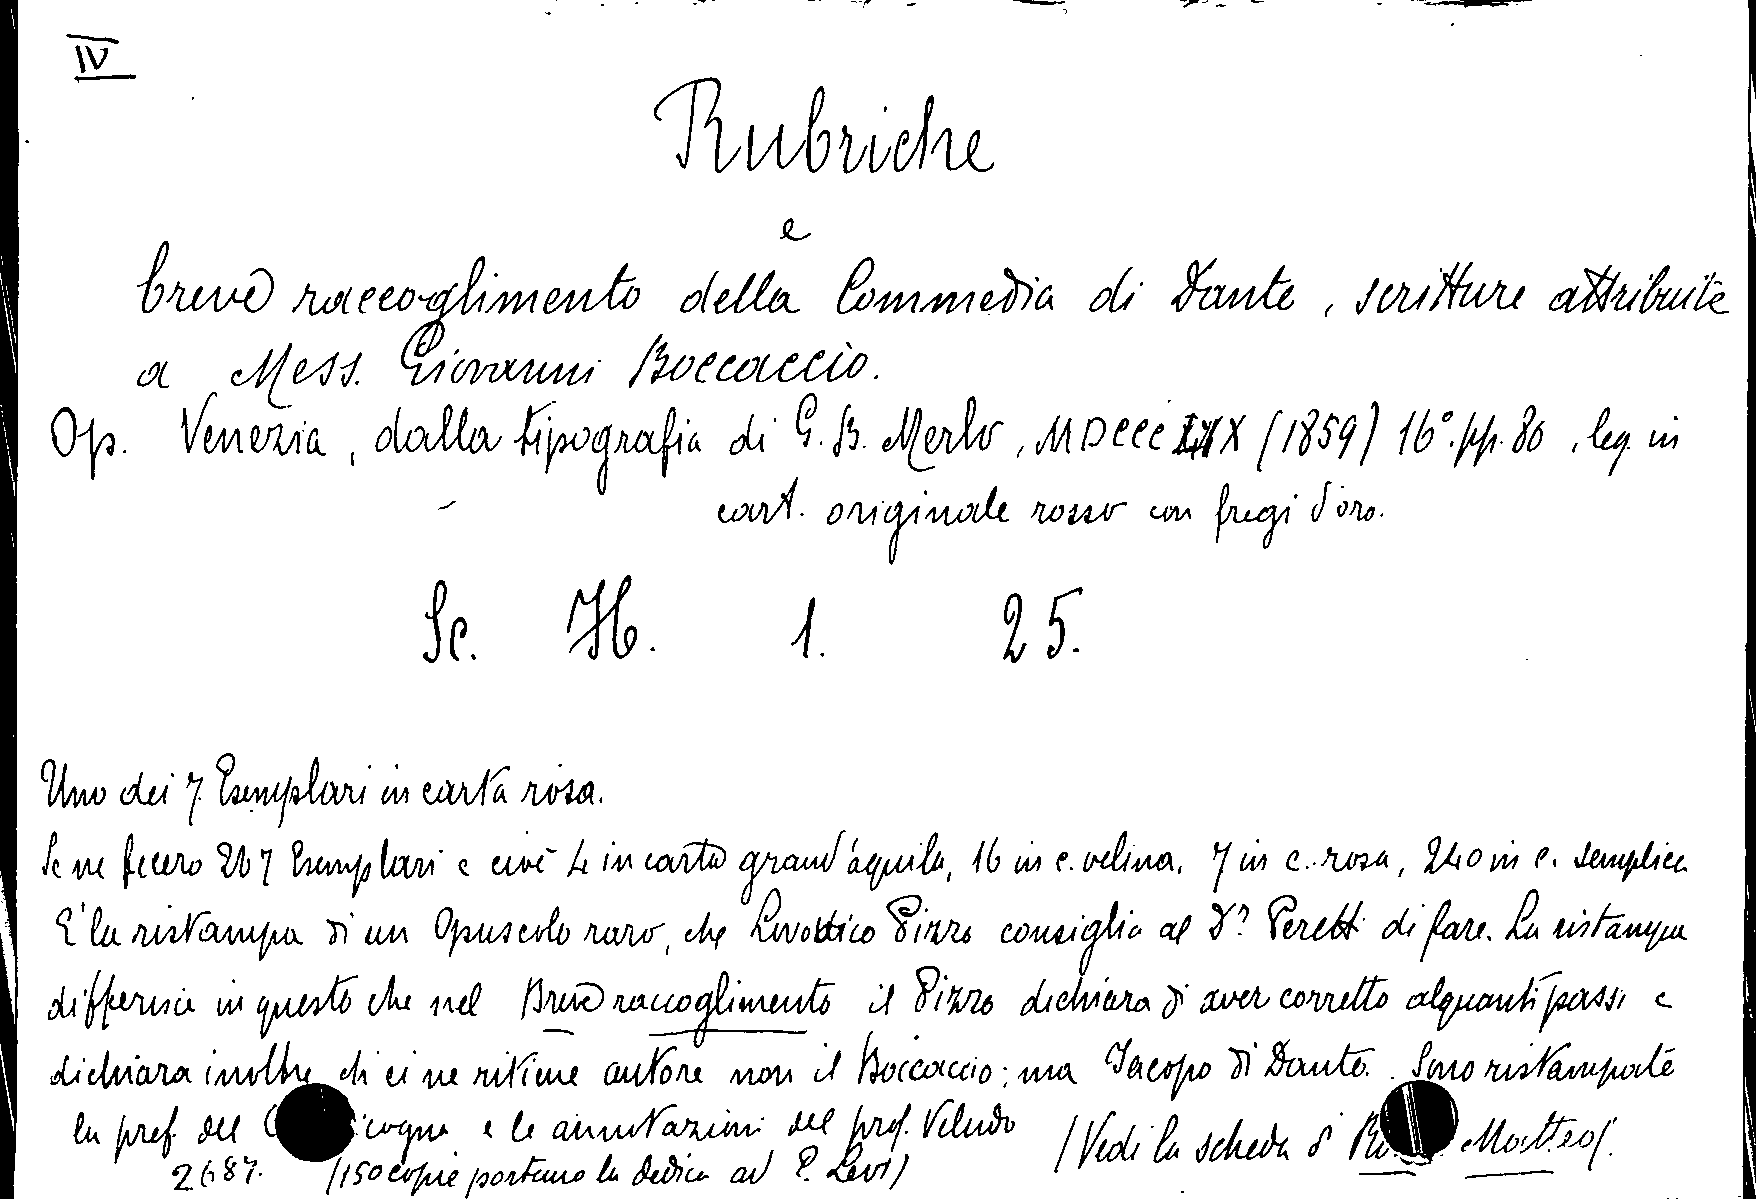 IV
Rubriche
e
breve raccoglimento della Commedia di Dante, scritture attribuite
a Mess. Giovanni Boccaccio.
Op. Venezia, dalla tipografia di G. B. Merlo, MDCCCLIX (1859) 16°. pp. 80, leg. in
cart. originale rosso con fregi d'oro.
Sc. H. 1. 25.
Uno dei 7 Esemplari in carta rosa.
Se ne fecero 267 Esemplari e cioè 4 in carta grand'aquila, 16 in c. velina, 7 in c. rosa, 240 in c. semplice
E' la ristampa di un Opuscolo raro, che Lodovico Pizzo consiglia al D.r Peretti di fare. La ristampa
differisce in questo che nel Breve raccoglimento il Pizzo dichiara di aver corretto alquanti passi e
dichiara inoltre ch'ei ne ritiene autore non il Boccaccio; ma Jacopo di Dante. Sono ristampate
la pref. del icogna e le annotazioni del prof. Veludo (Vedi la scheda di Matteo).
2687. (150 copie portano la dedica ad P. Levi)